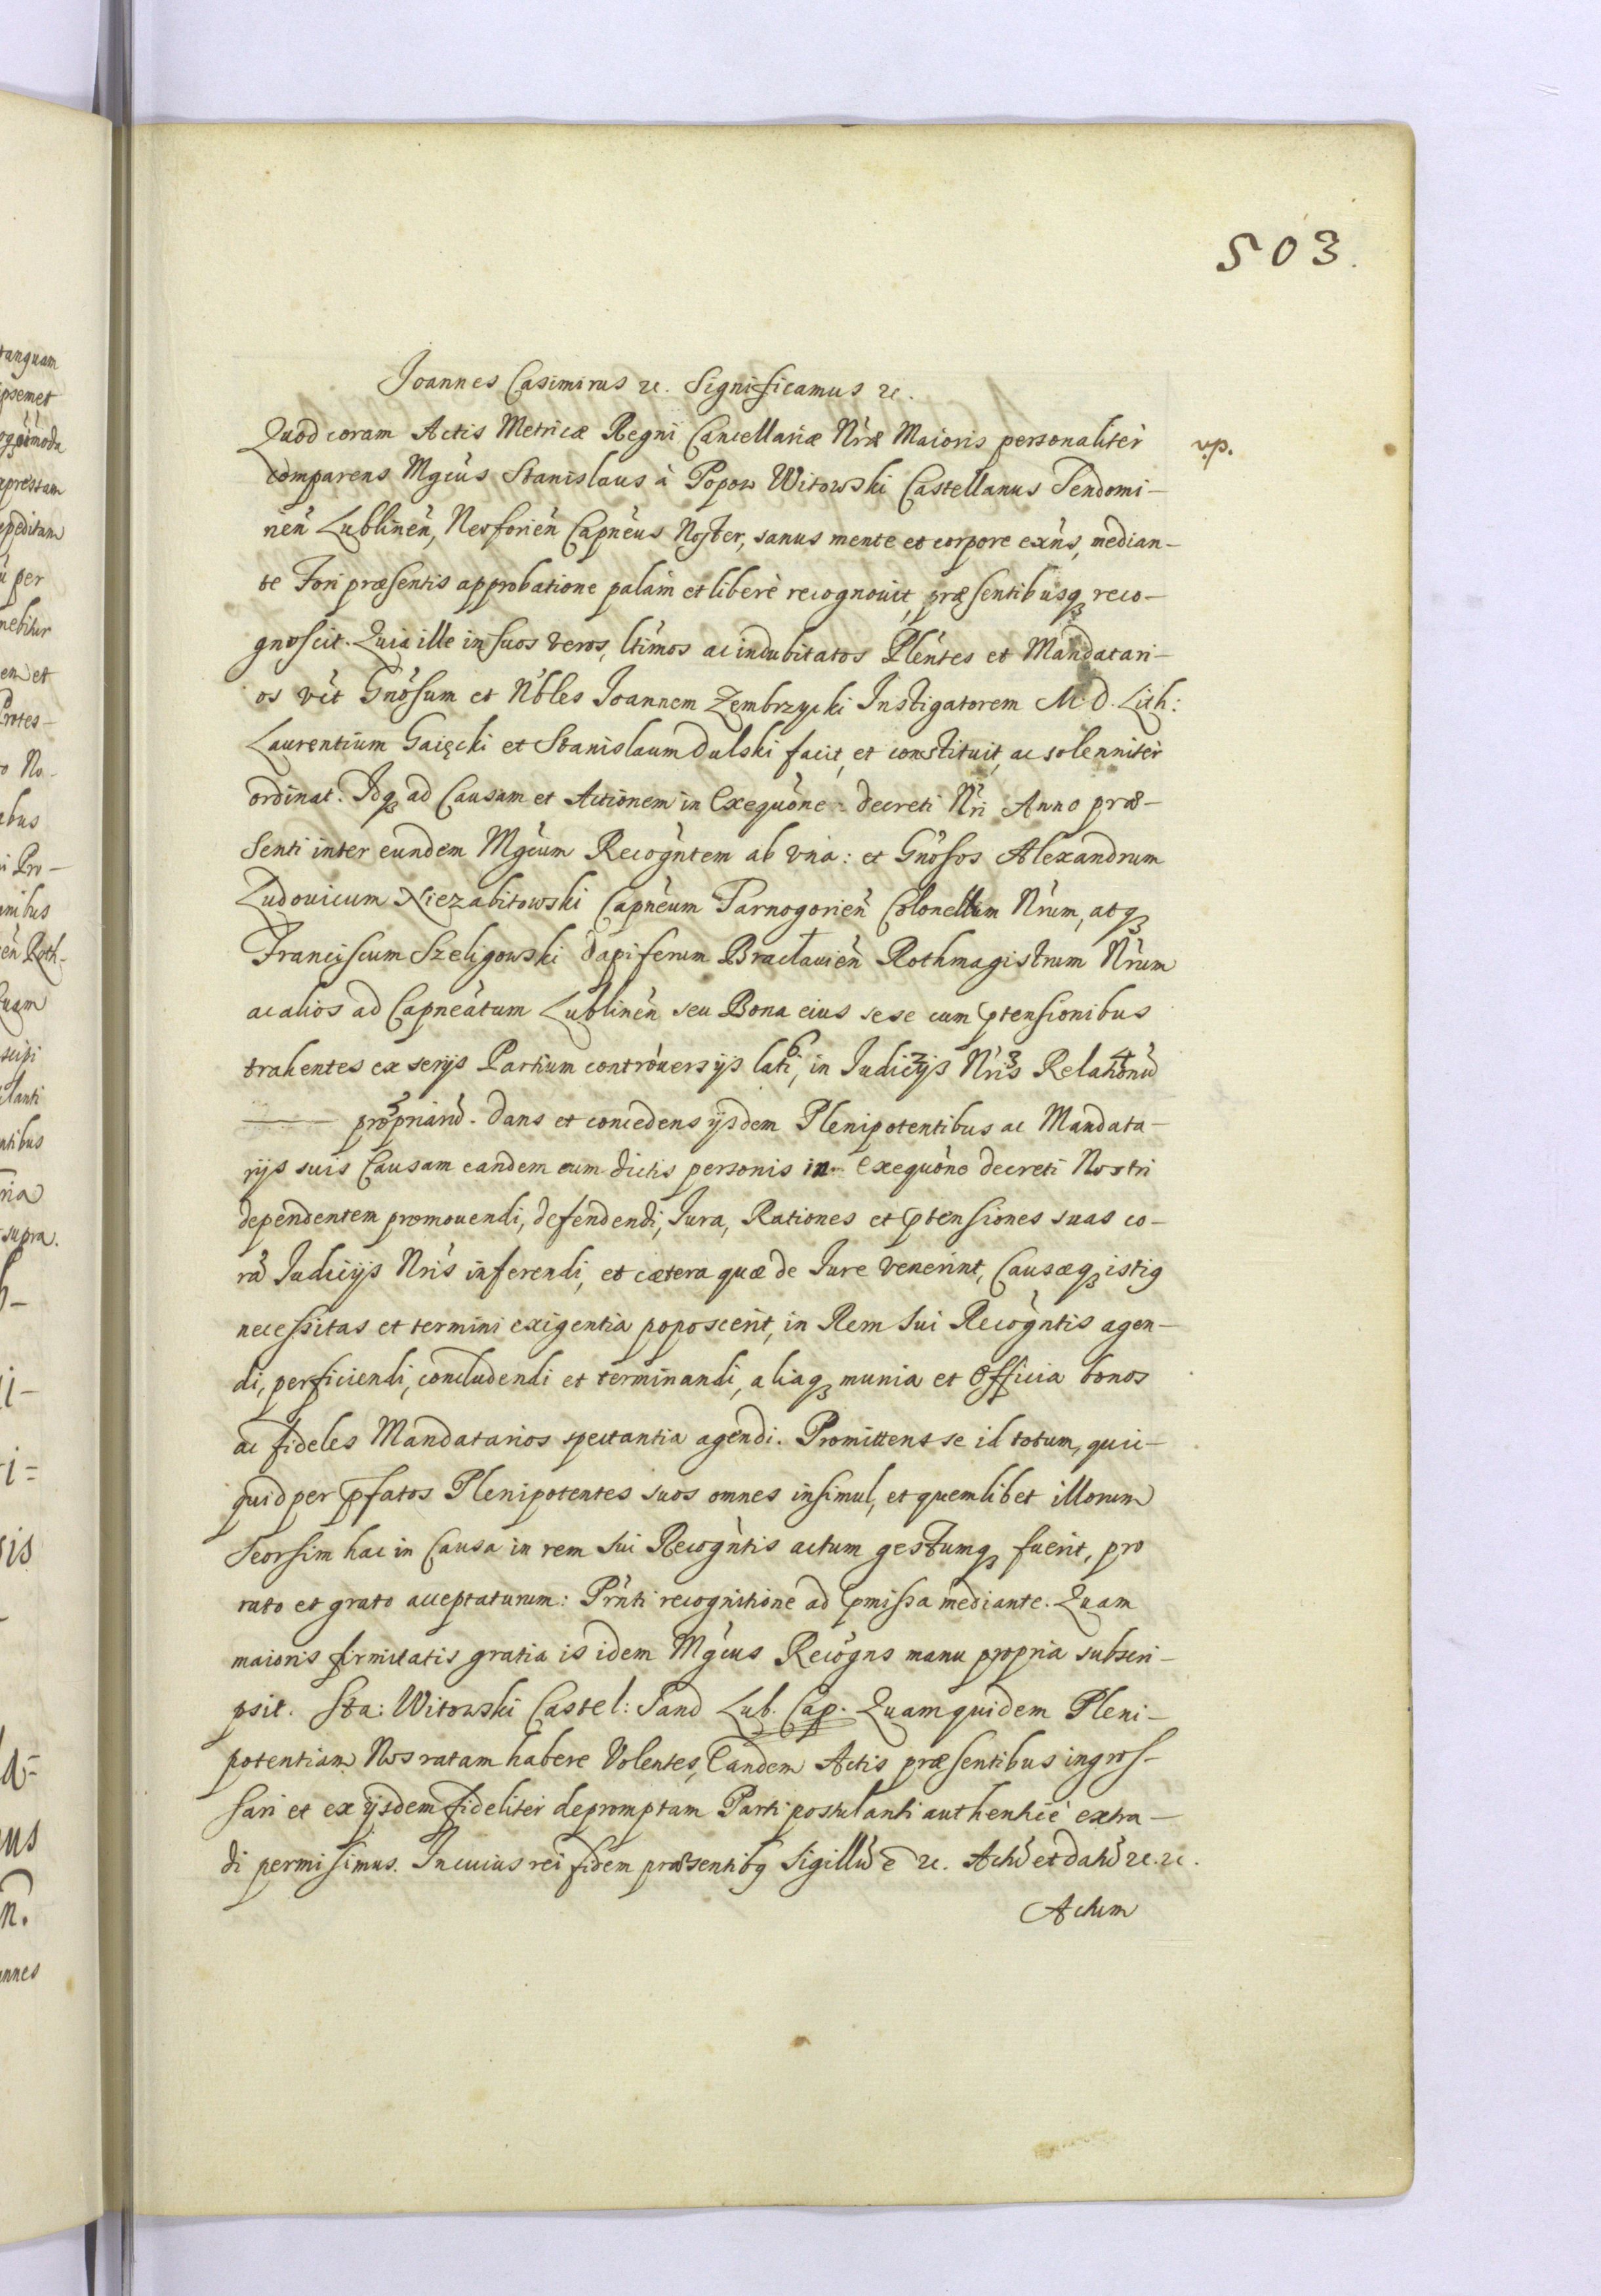 503.
Joannes Casimirus &c. Significamus &c.
Quod coram Actis Metricæ Regni Cancellariæ Nræ Maioris personaliter
v.p.
comparens Mgcus Stanislaus à Popow Witowski Castellanus Sendomi-
rien Lublinen, Neoforien Capneus Noster, sanus mente et corpore exns, median-
te Fori præsentis approbatione palam et libere recognouit, præsentibusq reco-
gnoscit. Quia ille in suos veros, ltimos ac indubitatos Plentes et Mandatari-
os vtt Gnosum et Nbles Joannem Zembrzycki Instigatorem M. D. Lith:
Laurentium Gaięcki et Stanislaum Dulski facit, et constituit, ac solenniter
ordinat. Idq ad Causam et Actionem in Exequone decreti Nri Anno præ-
senti inter eundem Mgcum Recogntem ab vna: et Gnosos Alexandrum
Ludouicum Niezabitowski Capneum Tarnogorien Colonellum Nrum, atq
Franciscum Szeligowski Dapiferum Bracłauien Rothmagistrum Nrum
ac alios ad Capneatum Lublinen seu Bona eius sese cum ptensionibus
trahentes ex serijs Partium controuersijs lati, in Judicijs Nris Relationu
propriand. Dans et concedens ijsdem Plenipotentibus ac Mandata-
rijs suis Causam eandem cum dictis personis in Exequone decreti Nostri
dependentem promouendi, defendendi, Jura, Rationes et ptensiones suas co-
ra Judicijs Nris inferendi, et cætera quæ de Jure venerint, Causæq istiq
necessitas et termini exigentia poposcerit, in Rem sui Recogntis agen-
di, perficiendi, concludendi et terminandi, aliaq munia et Officia bonos
ac fideles Mandatarios spectantia agendi. Promittens se id totum, quic-
quid per pfatos Plenipotentes suos omnes insimul, et quemlibet illorum
seorsim hac in Causa in rem sui Recogntis actum gestumq fuerit, pro
rato et grato acceptaturum: Prnti recognitione ad pmissa mediante. Quam
maioris firmitatis gratia is idem Mgcus Recogns manu propria subscri-
psit. Sta: Witowski Castel: Sand Lub. Cap. Quam quidem Pleni-
potentiam Nos ratam habere Volentes, Eandem Actis præsentibus ingros-
sari et ex ijsdem fideliter depromptam Parti postulanti authentice extra-
di permisimus. In cuius rei fidem præsentibq Sigillu e &c. Actu et datu &c. &c.
Actum